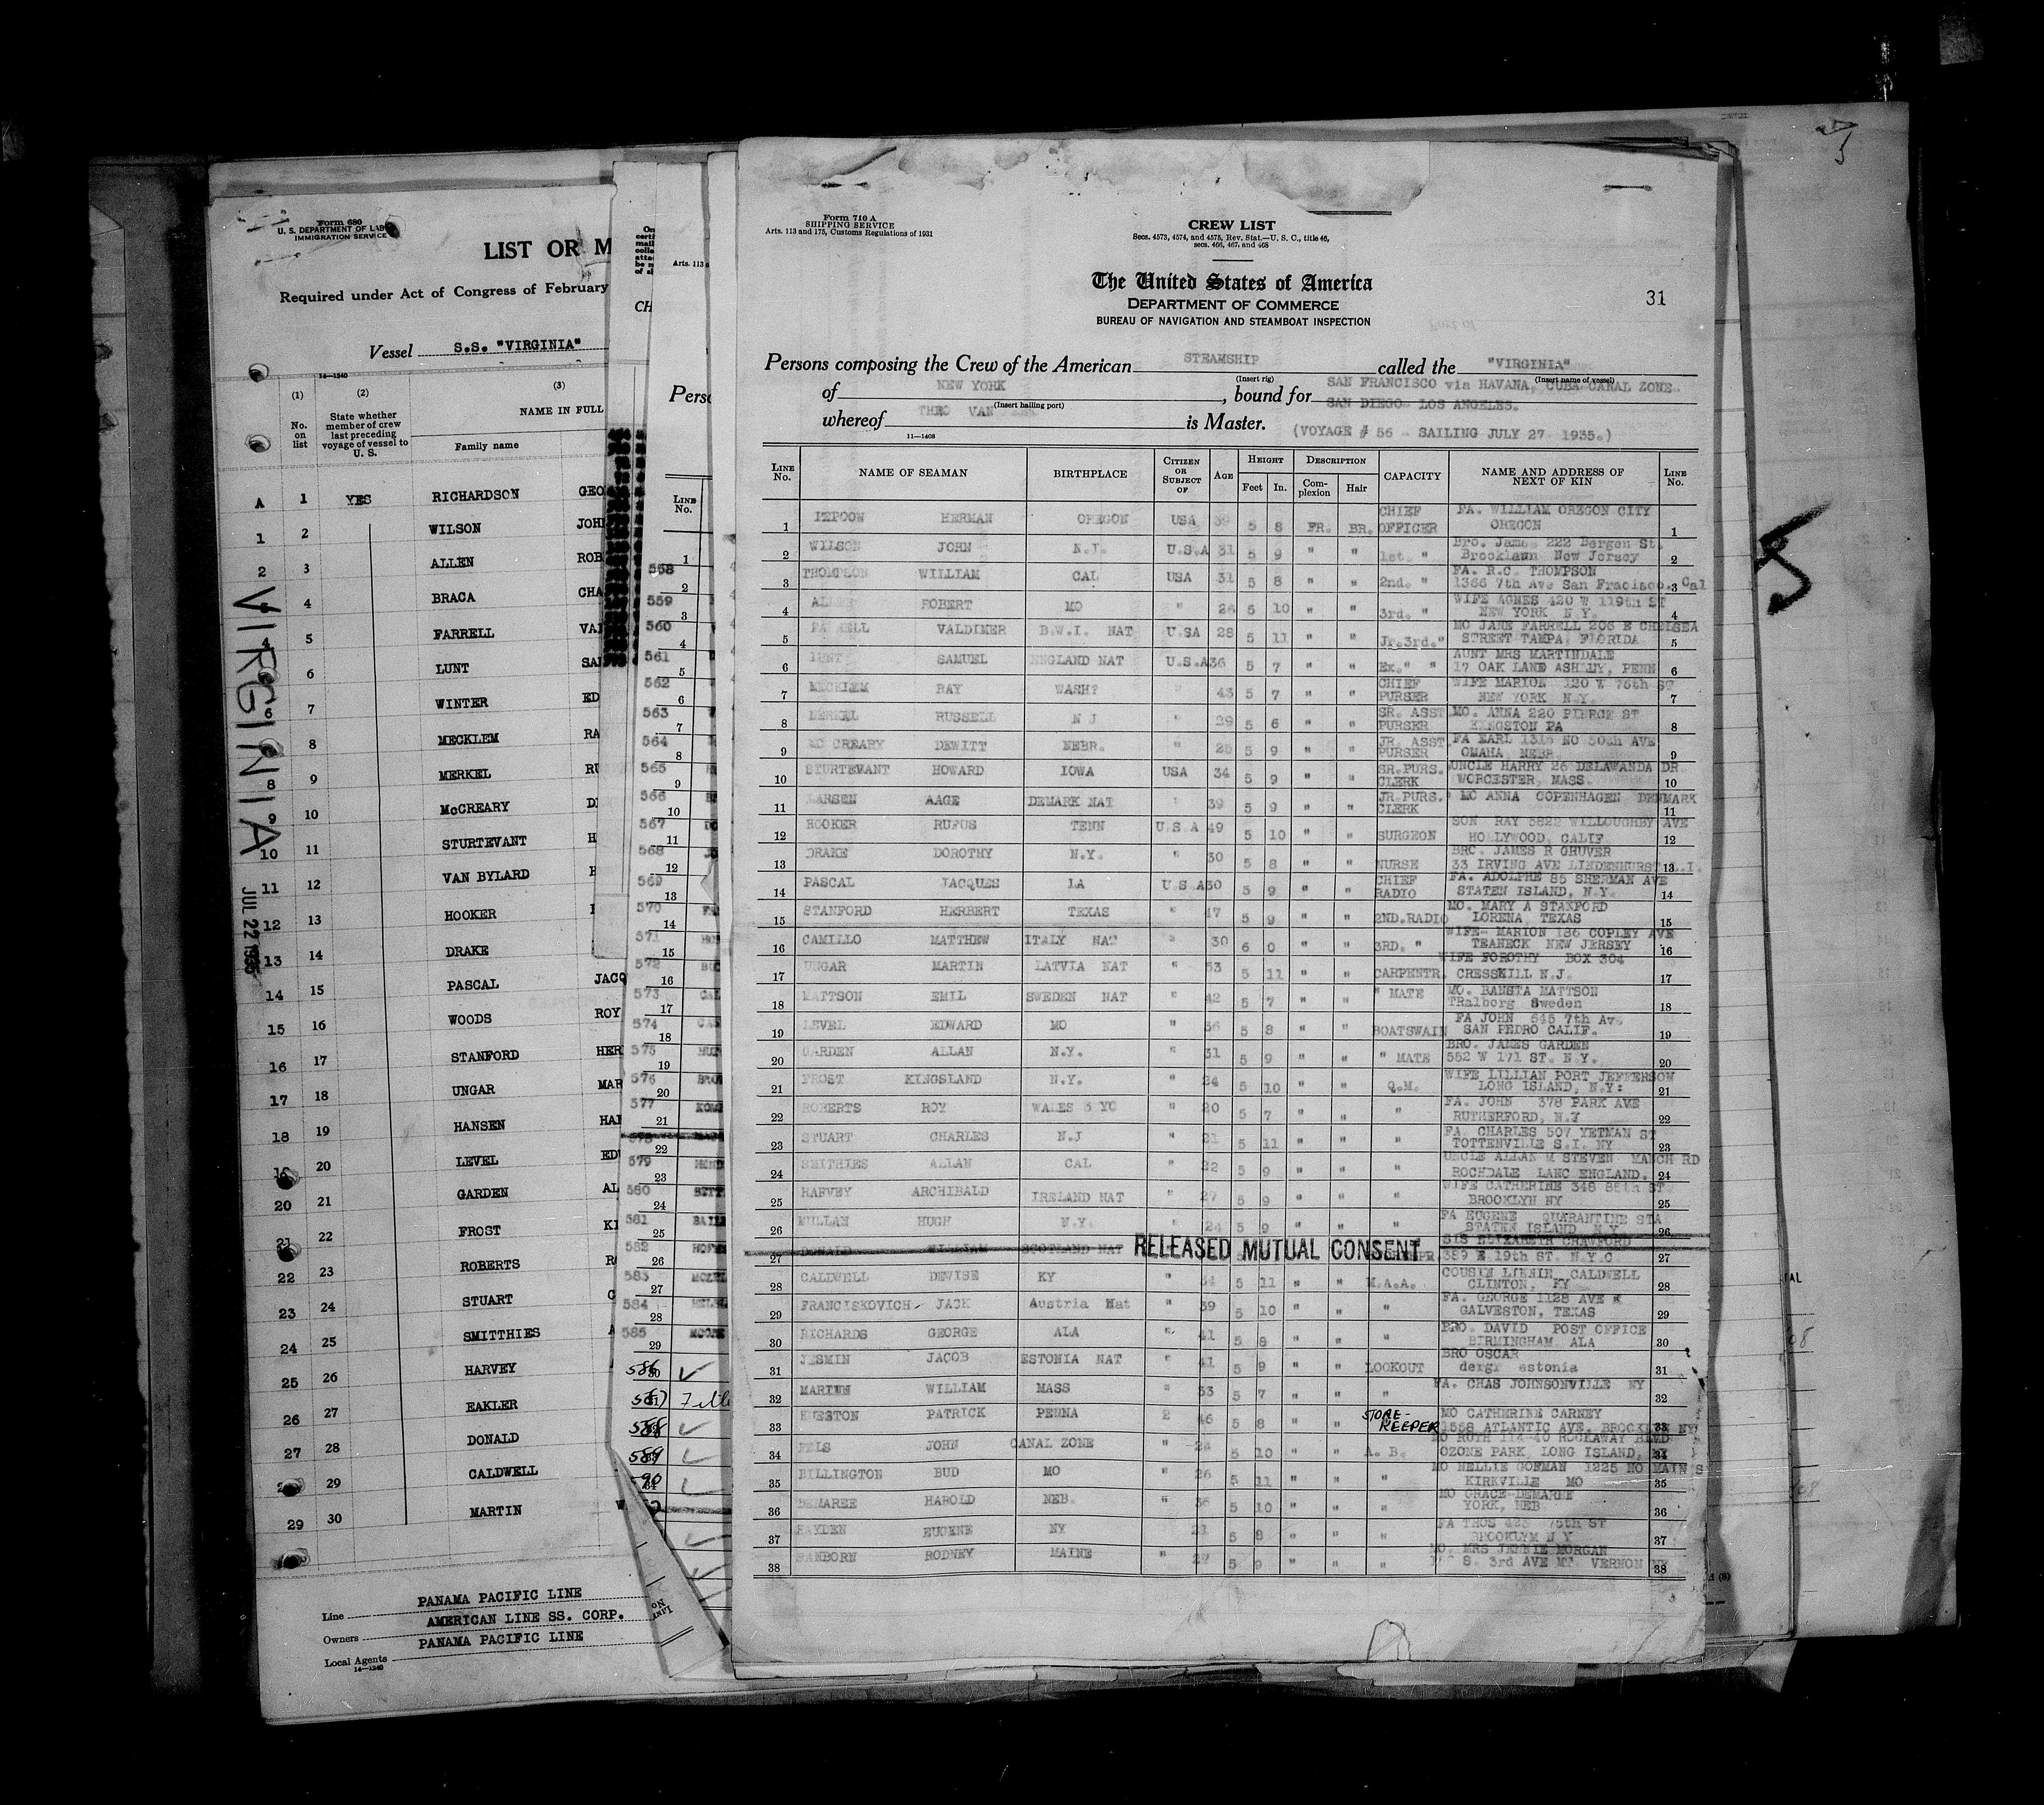 Form 680
U. S. DEPARTMENT OF LAB
IMMIGRATION SERVICE
LIST OR M
Required under Act of Congress of February
Vessel S.S. "VIRGINIA"
14—1240
(1) (2) (3)
No. on list
State whether member of crew last preceding voyage of vessel to U. S.
NAME IN FULL
Family name
A 1 YES RICHARDSON GEO
1 2 WILSON JOHN
2 3 ALLEN ROB
4 BRACA CHA
4 5 FARRELL VAL
6 LUNT SA
6 7 WINTER ED
8 MECKLEM RA
8 9 MERKEL RU
9 10 McCREARY D
10 11 STURTEVANT H
11 12 VAN BYLARD H
12 13 HOOKER
13 14 DRAKE
14 15 PASCAL JACQ
15 16 WOODS ROY
16 17 STANFORD HER
17 18 UNGAR MAR
18 19 HANSEN HA
19 20 LEVEL ED
20 21 GARDEN AL
21 22 FROST KI
22 23 ROBERTS R
23 24 STUART C
24 25 SMITTHIES A
25 26 HARVEY
26 27 EAKLER
27 28 DONALD
29 CALDWELL
29 30 MARTIN
VIRGINIA
JUL 22 1935
Line PANAMA PACIFIC LINE
Owners AMERICAN LINE SS. CORP.
Local Agents PANAMA PACIFIC LINE
14—1240
CH
Arts. 113 a
Perso
LINE No.
1
558
2
559
3
560
4
561
5
562
6
563
7
564
8
565
9
566
10
567
11
568
12
569
13
570
14
571
15
572
16
573
17
574
18
575
19
576
20
577
21
578
22
579
23
580
24
581
25
582
26
583
27
584
28
585
29
586
588
589
90
Form 710 A
SHIPPING SERVICE
Arts. 113 and 175, Customs Regulations of 1931
CREW LIST
Secs. 4573, 4574, and 4575, Rev. Stat.—U. S. C., title 46,
secs. 466, 467, and 468
The United States of America
DEPARTMENT OF COMMERCE
BUREAU OF NAVIGATION AND STEAMBOAT INSPECTION
31
Persons composing the Crew of the American STEAMSHIP called the "VIRGINIA"
(Insert rig) (Insert name of vessel)
of NEW YORK, bound for SAN FRANCISCO via HAVANA, CUBA CANAL ZONE
(Insert hailing port) SAN DIEGO LOS ANGELES.
whereof THEO VAN is Master. (VOYAGE # 56 - SAILING JULY 27 1935.)
11—1408
LINE No. NAME OF SEAMAN BIRTHPLACE CITIZEN OR SUBJECT OF AGE HEIGHT Feet In. DESCRIPTION Complexion Hair CAPACITY NAME AND ADDRESS OF NEXT OF KIN LINE No.
1 PEPOON HERMAN OREGON USA 39 5 8 FR. BR. CHIEF OFFICER FA. WILLIAM OREGON CITY OREGON 1
2 WILSON JOHN N.J. U.S.A 31 5 9 " " 1st. " Bro. James 222 Bergen St. Brooklawn New Jersey 2
3 THOMPSON WILLIAM CAL USA 31 5 8 " " 2nd. " FA. R.C. THOMPSON 1366 7th Ave San Fracisco. Cal 3
4 ROBERT MO " 26 5 10 " " 3rd. " WIFE AGNES 420 W 119th ST NEW YORK N.Y. 4
5 VALDIMER B.W.I. NAT U.SA 28 5 11 " " Jr.3rd." MO JANE FARRELL 206 E CHELSEA STREET TAMPA, FLORIDA 5
6 LUNT SAMUEL ENGLAND NAT U.S.A 36 5 7 " " Ex." " AUNT MRS MARTINDALE 17 OAK LANE ASHLEY, PENN 6
7 MECKLEM RAY WASH? " 43 5 7 " " CHIEF PURSER WIFE MARION 320 E 76th ST NEW YORK N.Y. 7
8 MERKEL RUSSELL N J " 29 5 6 " " SR. ASST PURSER MO. ANNA 220 PIERCE ST KINGSTON PA 8
9 MC CREARY DEWITT NEBR. " 25 5 9 " " JR. ASST. PURSER FA EARL 1316 NO 50th AVE OMAHA NEBR 9
10 STURTEVANT HOWARD IOWA USA 34 5 9 " " SR.PURS. CLERK UNCLE HARRY 26 DELAWANDA DR WORCESTER, MASS. 10
11 LARSEN AAGE DEMARK NAT " 39 5 9 " " JR.PURS. CLERK MO ANNA COPENHAGEN DENMARK 11
12 HOOKER RUFUS TENN U.S.A 49 5 10 " " SURGEON SON RAY 5822 WILLOUGHBY AVE HOLLYWOOD, CALIF 12
13 DRAKE DOROTHY N.Y. " 30 5 8 " " NURSE BRO. JAMES R GRUVER 33 IRVING AVE LINDENHURST L.I. 13
14 PASCAL JACQUES LA U.S.A 30 5 9 " " CHIEF RADIO FA. ADOLPHE 85 SHERMAN AVE STATEN ISLAND, N.Y. 14
15 STANFORD HERBERT TEXAS " 47 5 9 " " 2ND.RADIO MO. MARY A STANFORD LORENA TEXAS 15
16 CAMILLO MATTHEW ITALY NAT " 30 6 0 " " 3RD. " WIFE- MARION 186 COPLEY AVE TEANECK NEW JERSEY 16
17 UNGAR MARTIN LATVIA NAT " 53 5 11 " " CARPENTR. WIFE FOROTHY BOX 304 CRESSKILL N.J. 17
18 MATTSON EMIL SWEDEN NAT " 42 5 7 " " " MATE MO. BANSTA MATTSON TRalborg Sweden 18
19 LEVEL EDWARD MO " 36 5 8 " " BOATSWAIN FA JOHN 545 7th Ave SAN PEDRO CALIF. 19
20 GARDEN ALLAN N.Y. " 31 5 9 " " " MATE BRO. JAMES GARDEN 552 W 171 ST. N.Y. 20
21 FROST KINGSLAND N.Y. " 24 5 10 " " Q.M. WIFE LILLIAN PORT JEFFERSON LONG ISLAND, N.Y: 21
22 ROBERTS ROY WALES 3 YO " 20 5 7 " " " FA. JOHN 378 PARK AVE RUTHERFORD, N.Y 22
23 STUART CHARLES N.J " 21 5 11 " " " FA. CHARLES 507 YETMAN ST TOTTENVILLE S.I. NY 23
24 SMITHIES ALLAN CAL " 22 5 9 " " " UNCLE ALLAN M STEVEN MANCH RD ROCHDALE LANC ENGLAND. 24
25 HARVEY ARCHIBALD IRELAND NAT " 27 5 9 " " " WIFE CATHERINE 348 85th ST. BROOKLYN NY 25
26 MULLAN HUGH N.Y. " 24 5 9 " " " FA EUGENE QUARANTINE STA STATEN ISLAND N.Y. 26
27 DONALD WILLIAM SCOTLAND NAT RELEASED MUTUAL CONSENT SIS ELIZABETH CRAWFORD 389 E. 19th ST. N.Y.C 27
28 CALDWELL DEWISE KY " 34 5 11 " " M.A.A. COUSIN LINNIE CALDWELL CLINTON, KY 28
29 FRANCISKOVICH JACK Austria Nat " 39 5 10 " " " FA. GEORGE 1128 AVE K GALVESTON, TEXAS 29
30 RICHARDS GEORGE ALA " 41 5 8 " " " BRO. DAVID POST OFFICE BIRMINGHAM ALA 30
31 JESMIN JACOB ESTONIA NAT " 41 5 9 " " LOOKOUT BRO OSCAR dergi estonia 31
32 MARTIN WILLIAM MASS " 53 5 7 " " " FA. CHAS JOHNSONVILLE NY 32
33 HUESTON PATRICK PENNA 2 46 5 8 " " STORE-KEEPER MO CATHERINE CARNEY 1558 ATLANTIC AVE. BROOKLYN NY 33
34 JOHN CANAL ZONE " 24 5 10 " " A. B. MO RUTH 114-40 ROCKAWAY BLVD OZONE PARK, LONG ISLAND, NY 34
35 BILLINGTON BUD MO " 26 5 11 " " " MO NELLIE GOFMAN 1225 NO MAIN S KIRKVILLE MO 35
36 DEMAREE HAROLD NEB. " 36 5 10 " " " MO GRACE DEMAREE YORK, NEB 36
37 HAYDEN EUGENE NY 21 5 8 " " " FA THOS 423 75th ST BROOKLYM N Y 37
38 SANBORN RODNEY MAINE " 22 5 9 " " " MO. MRS JENNIE MORGAN S. 3rd AVE MT. VERNON NY 38